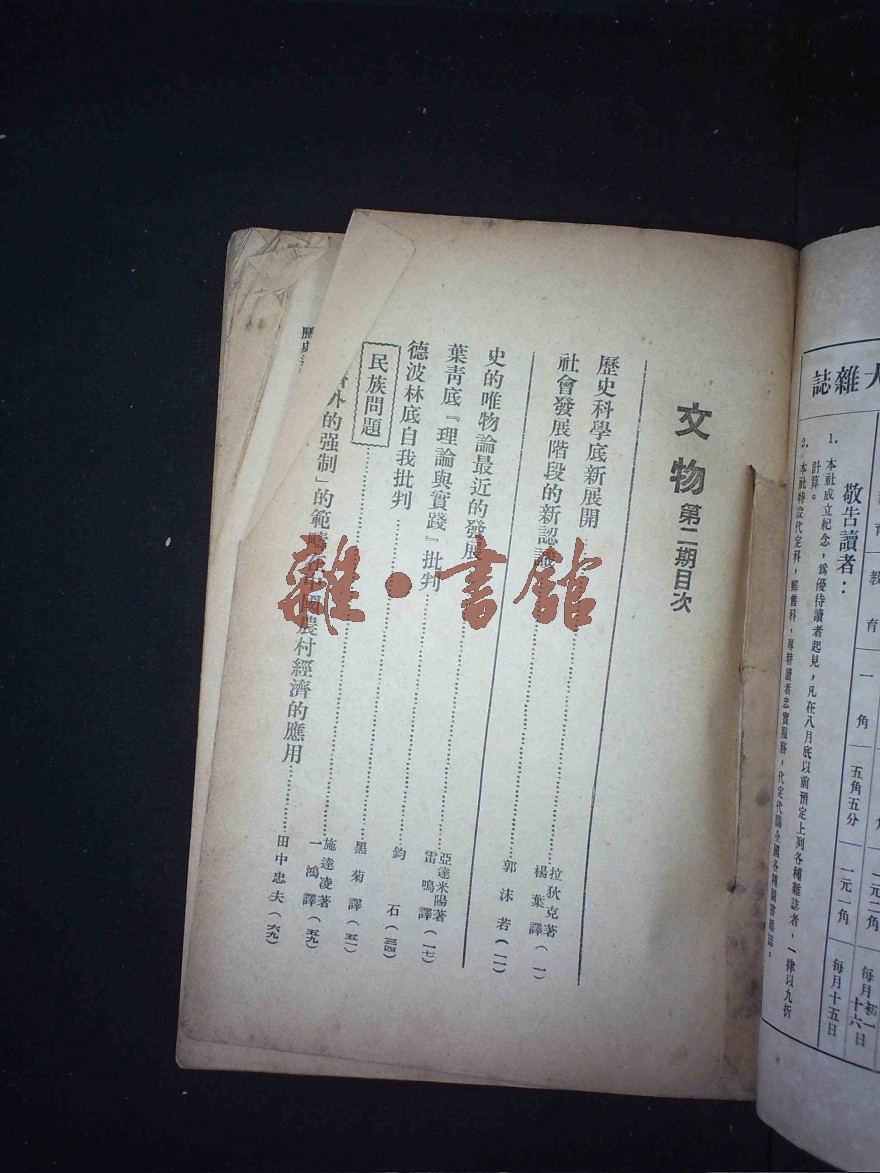 大雜誌
敬告讀者：
1. 本社成立紀念，爲優待讀者起見，凡在八月底以前預定上列各種雜誌者，一律以九折計算。
2. 本社特設代定科，郵舊科，專替讀者忠實服務，代定代購全國各種圖書雜誌。
教育
一角
五角五分
一元一角
每月十五日
每月初一十六日
文物 第二期目次
歷史科學底新展開……拉狄克著 楊葉譯（一）
社會發展階段的新認識……郭沫若（一一）
史的唯物論最近的發展……亞達米陽著 雷鳴譯（一七）
葉靑底『理論與實踐』批判……鈞石（三四）
德波林底自我批判……黑菊譯（五一）
民族問題……施達凌著 一鴻譯（五九）
外的强制」的範疇在中國農村經濟的應用……田中忠夫（六九）
歷史
雜·書館